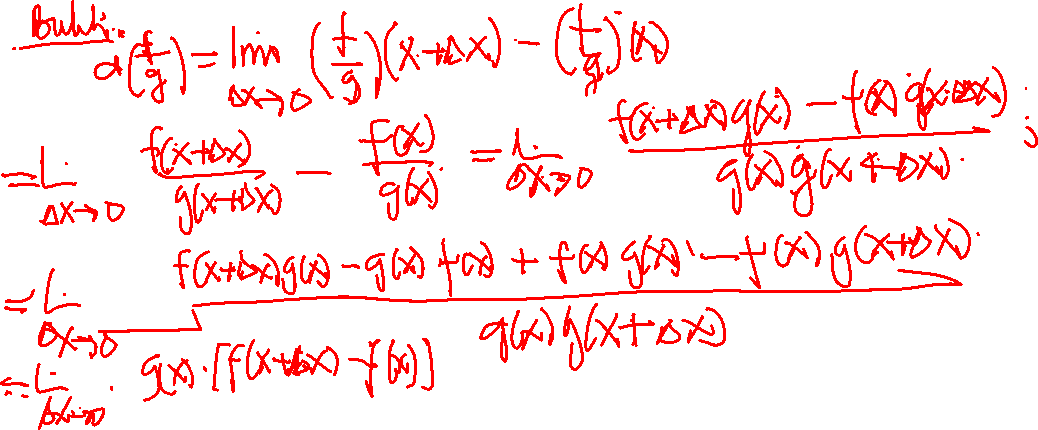 Bukti:
d(f/g) = lim Δx→0 (f/g)(x+Δx) − (f/g)(x)
= L Δx→0 f(x+Δx)/g(x+Δx) − f(x)/g(x) = L Δx→0 f(x+Δx)g(x) − f(x) g(x+Δx) / g(x) g(x+Δx) ;
= L Δx→0 f(x+Δx)g(x) − g(x) f(x) + f(x) g(x) − f(x) g(x+Δx) / g(x) g(x+Δx)
= L Δx→0 g(x) · [f(x+Δx) − f(x)]